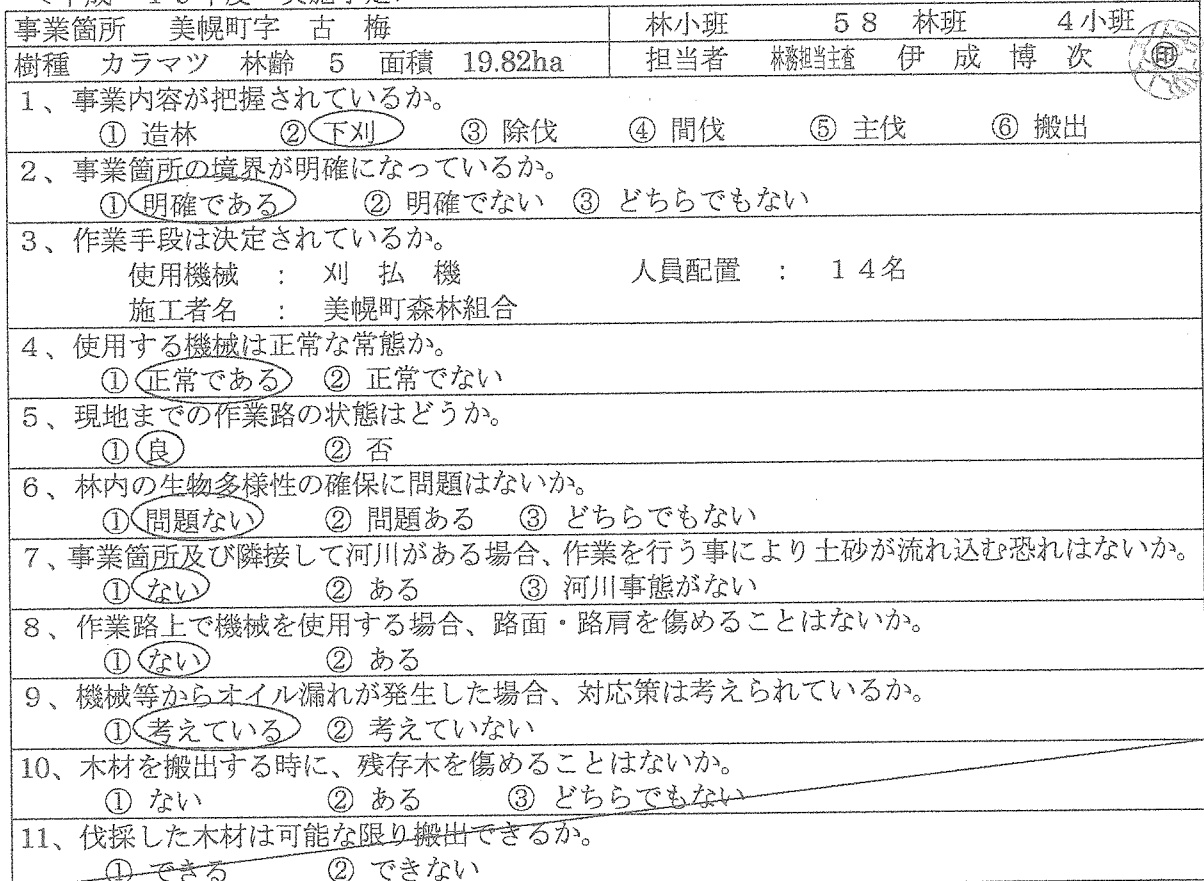 事業箇所　美幌町字　古　梅　林小班　５８　林班　４小班
樹種　カラマツ　林齢　5　面積　19.82ha　担当者　林務担当主査　伊　成　博　次　㊞
１、事業内容が把握されているか。
① 造林　② 下刈　③ 除伐　④ 間伐　⑤ 主伐　⑥ 搬出
２、事業箇所の境界が明確になっているか。
① 明確である　② 明確でない　③ どちらでもない
３、作業手段は決定されているか。
使用機械　：　刈　払　機　人員配置　：　１４名
施工者名　：　美幌町森林組合
４、使用する機械は正常な常態か。
① 正常である　② 正常でない
５、現地までの作業路の状態はどうか。
① 良　② 否
６、林内の生物多様性の確保に問題はないか。
① 問題ない　② 問題ある　③ どちらでもない
７、事業箇所及び隣接して河川がある場合、作業を行う事により土砂が流れ込む恐れはないか。
① ない　② ある　③ 河川事態がない
８、作業路上で機械を使用する場合、路面・路肩を傷めることはないか。
① ない　② ある
９、機械等からオイル漏れが発生した場合、対応策は考えられているか。
① 考えている　② 考えていない
10、木材を搬出する時に、残存木を傷めることはないか。
① ない　② ある　③ どちらでもない
11、伐採した木材は可能な限り搬出できるか。
① できる　② できない